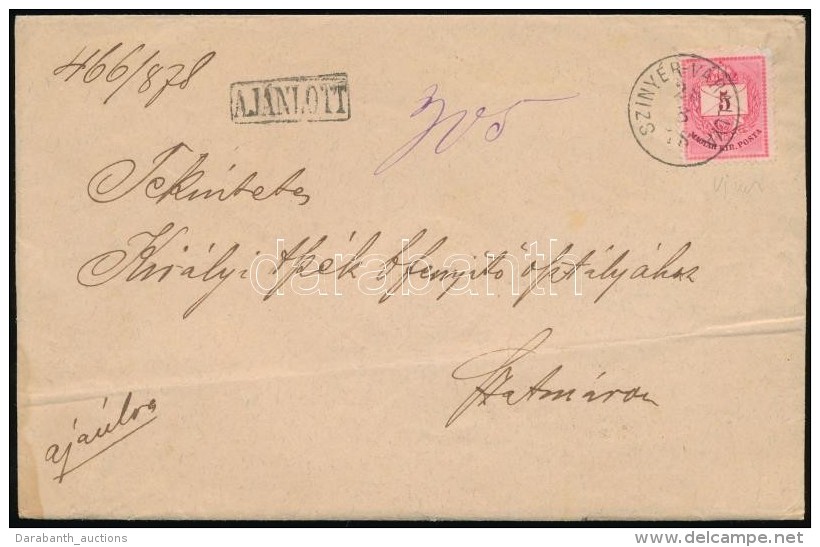 466/878
AJÁNLOTT
305
SZINYÉR-VÁ
5
MAGYAR KIR. POSTA
Tekintetes
Királyi tszék fenyitő osztályához
Szatmáron
ajánlva
darabanth
Darabanth_auctions
delcampe.net